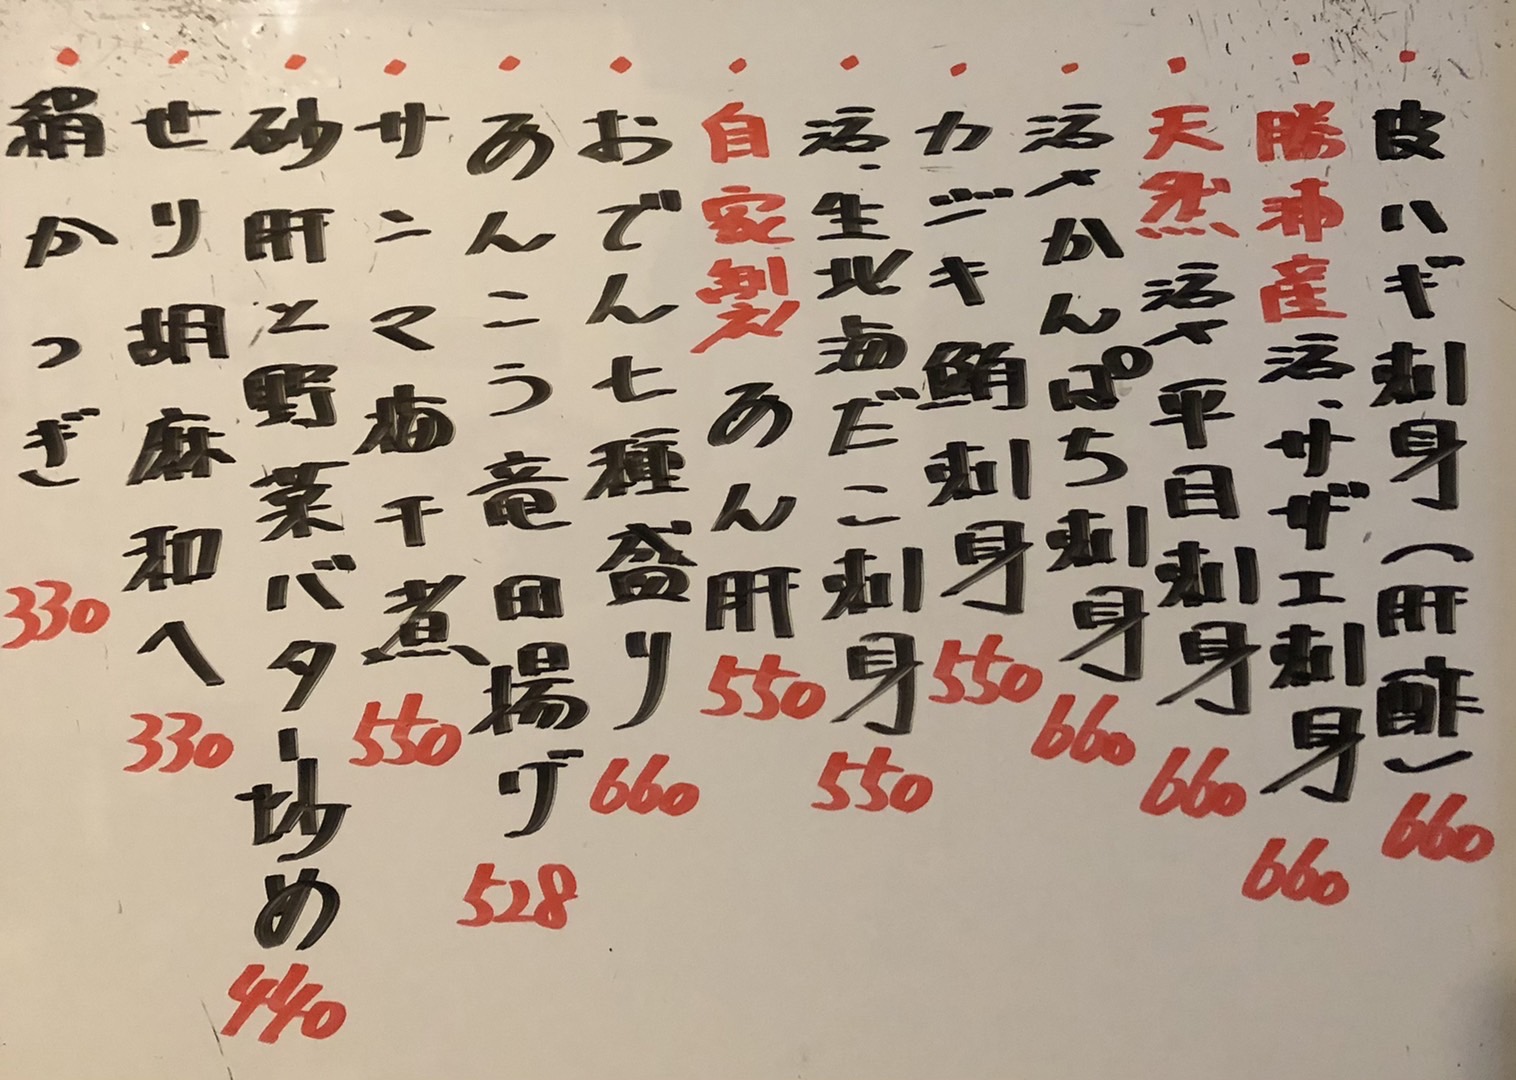 ・皮ハギ刺身(肝酢)660
・勝浦産活、サザエ刺身660
・天然活〆平目刺身660
・活〆かんぱち刺身660
・カジキ鮪刺身550
・活、生北海だこ刺身550
・自家製あん肝550
・おでん七種盛り660
・あんこう竜田揚げ528
・サンマ梅干煮550
・砂肝と野菜バター炒め440
・せり胡麻和へ330
・絹かつぎ330